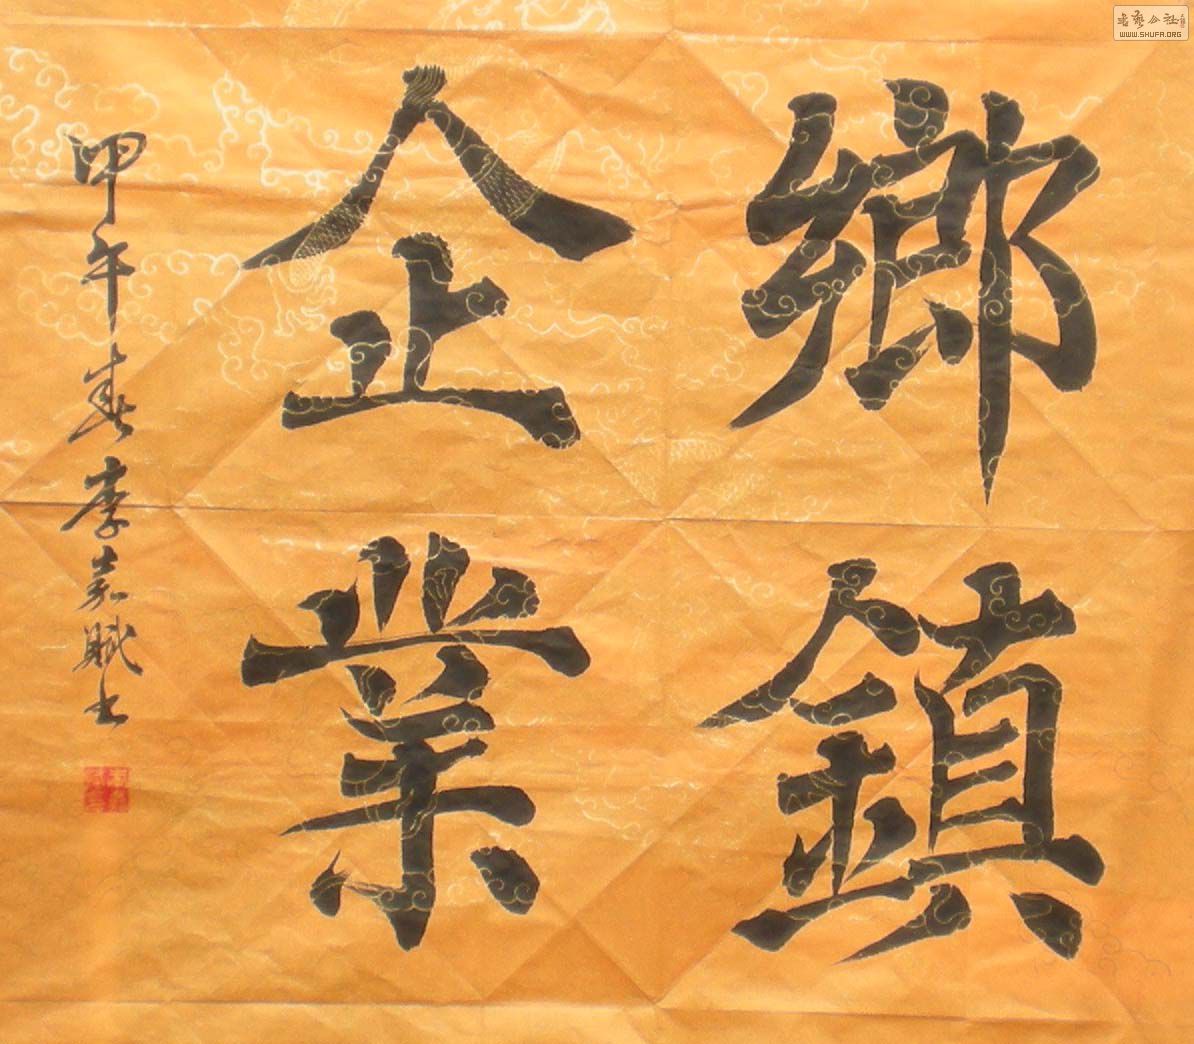 鄉鎮
企業
甲午春李嘉賦書
書藝公社
WWW.SHUFA.ORG